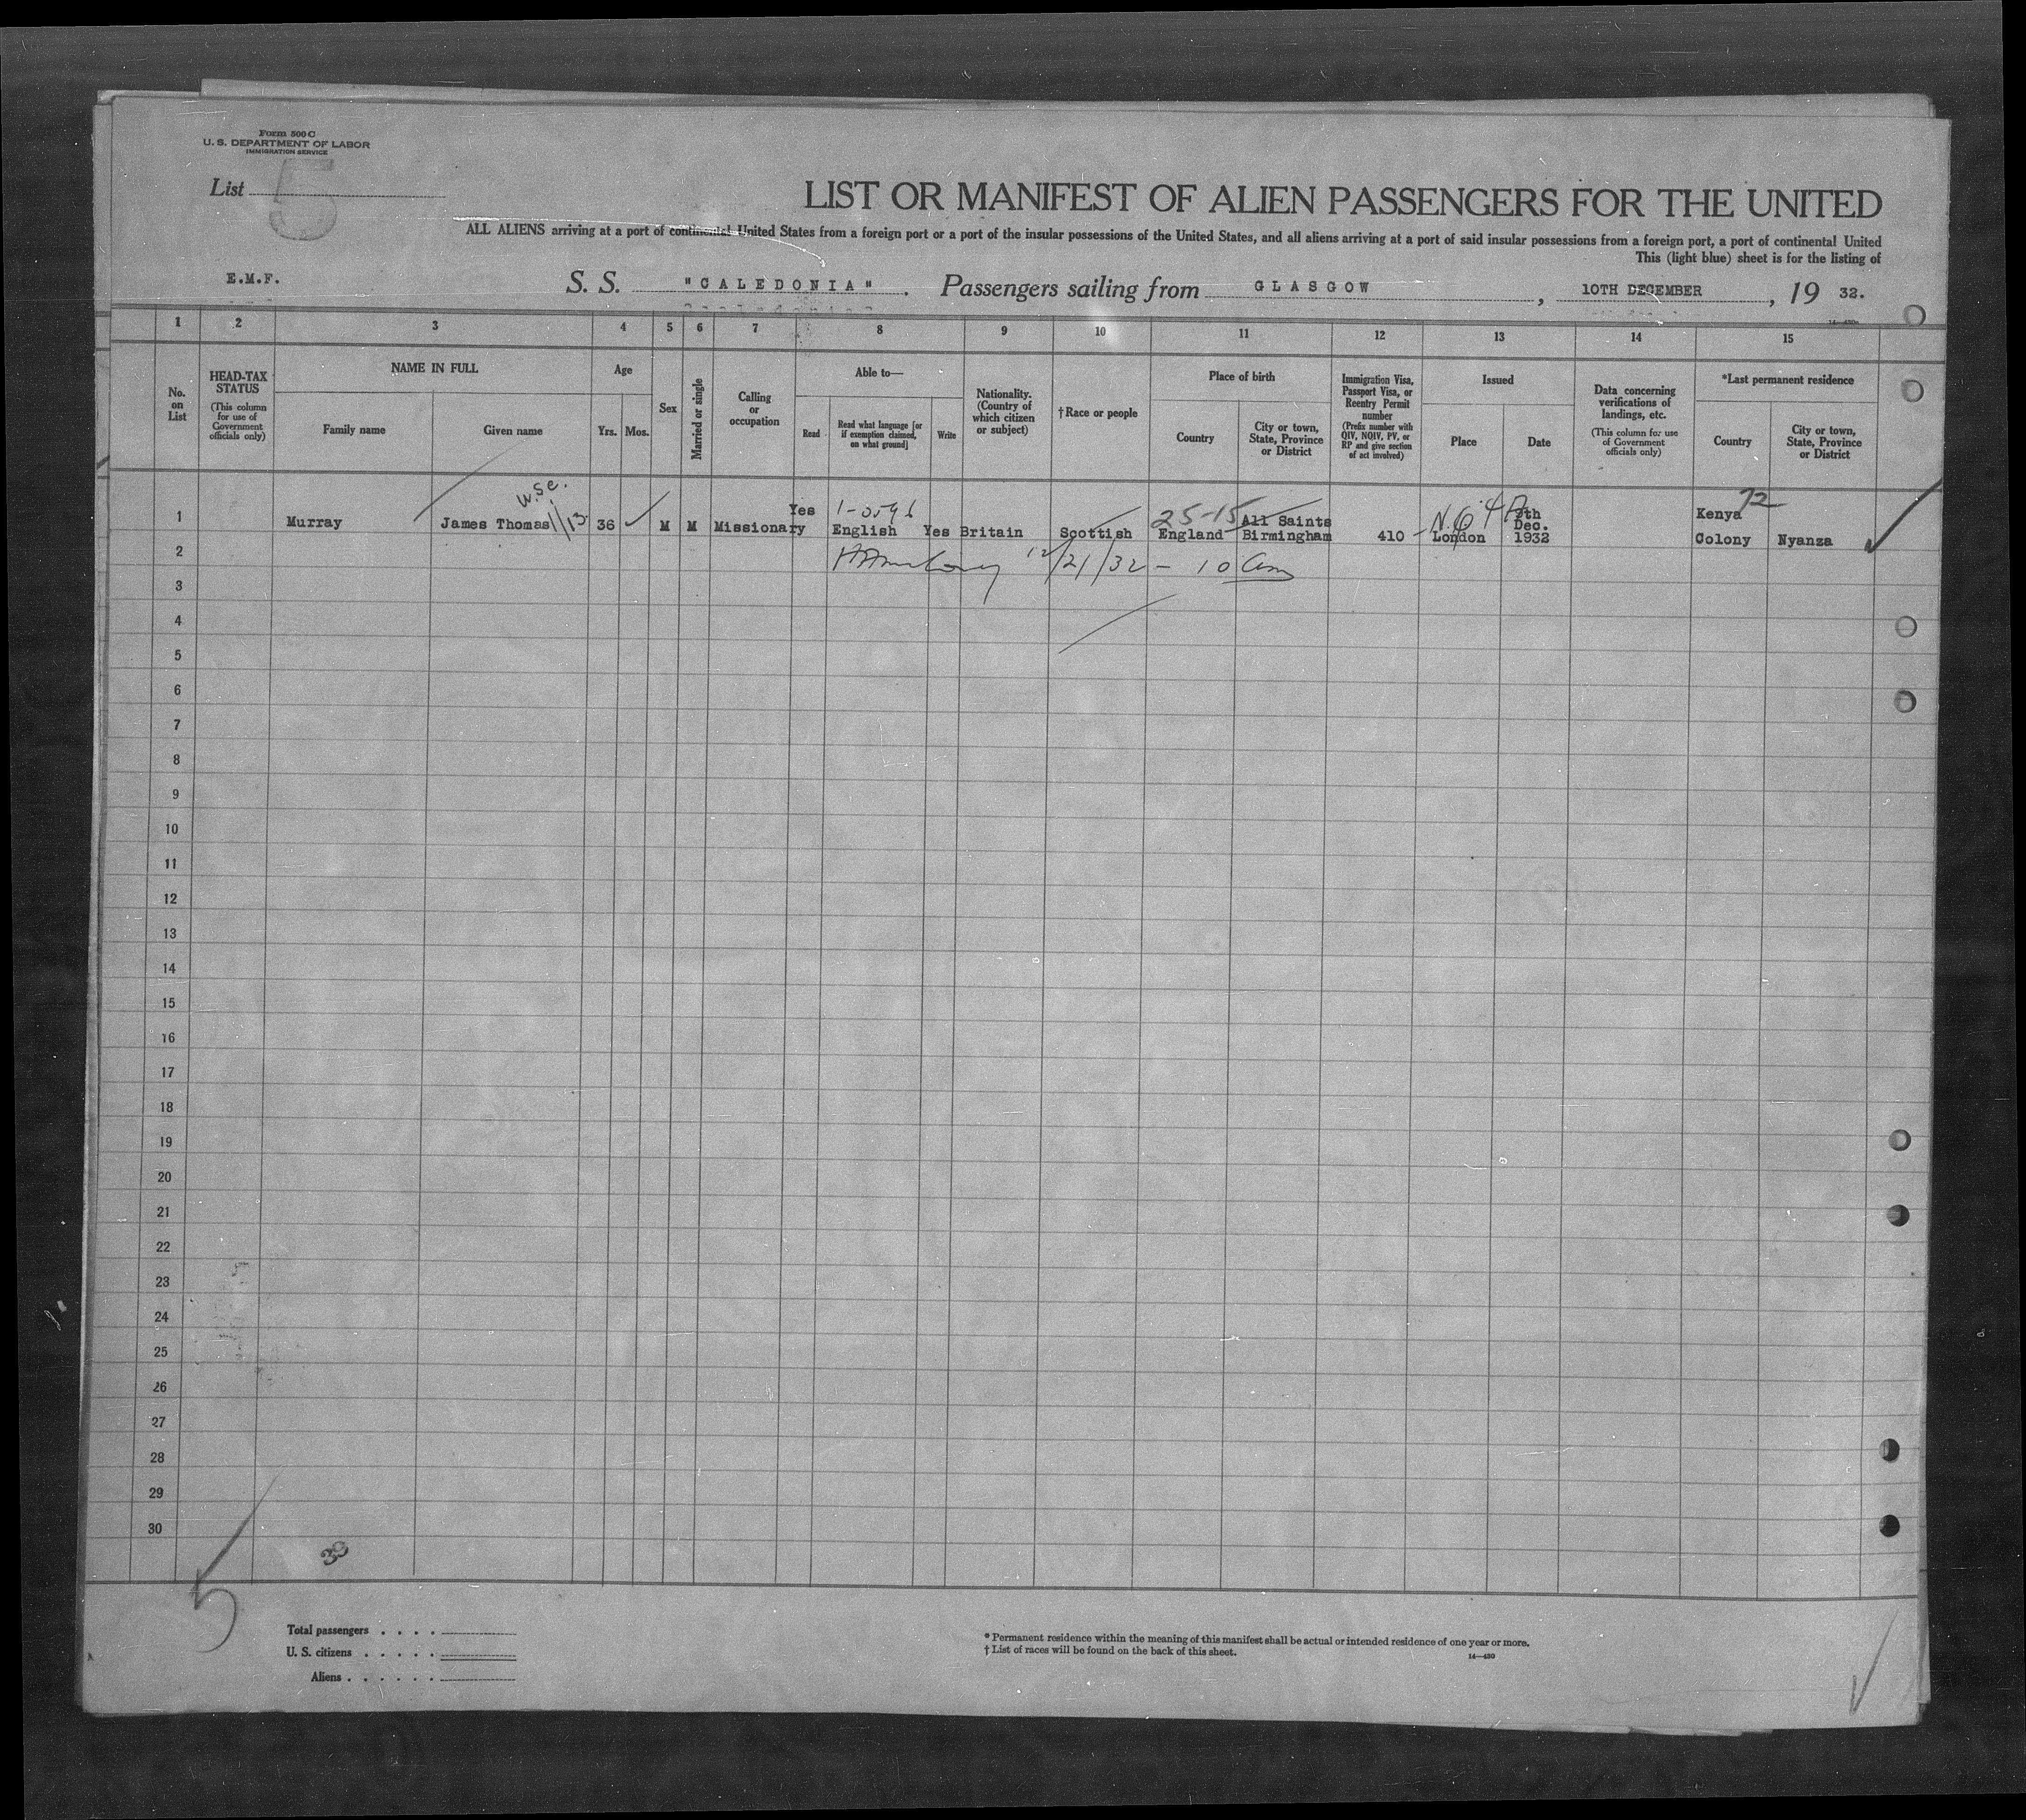 Form 500 C
U. S. DEPARTMENT OF LABOR
IMMIGRATION SERVICE
List 5
LIST OR MANIFEST OF ALIEN PASSENGERS FOR THE UNITED
ALL ALIENS arriving at a port of continental United States from a foreign port or a port of the insular possessions of the United States, and all aliens arriving at a port of said insular possessions from a foreign port, a port of continental United
This (light blue) sheet is for the listing of
E.M.F. S. S. "CALEDONIA". Passengers sailing from GLASGOW, 10TH DECEMBER, 19 32.
1 2 3 4 5 6 7 8 9 10 11 12 13 14 15
No. on List
HEAD-TAX STATUS
(This column for use of Government officials only)
NAME IN FULL
Family name Given name
Age
Yrs. Mos.
Sex
Married or single
Calling or occupation
Able to—
Read
Read what language [or if exemption claimed, on what ground]
Write
Nationality. (Country of which citizen or subject)
†Race or people
Place of birth
Country
City or town, State, Province or District
Immigration Visa, Passport Visa, or Reentry Permit number
(Prefix number with QIV, NQIV, PV, or RP and give section of act involved)
Issued
Place Date
Data concerning verifications of landings, etc.
(This column for use of Government officials only)
*Last permanent residence
Country
City or town, State, Province or District
1 Murray James Thomas 36 M M Missionary Yes English Yes Britain Scottish England All Saints Birmingham 410 London 9th Dec. 1932 Kenya Colony Nyanza
25-15
72
2
12/21/32 - 10 am
3
4
5
6
7
8
9
10
11
12
13
14
15
16
17
18
19
20
21
22
23
24
25
26
27
28
29
30
5
Total passengers . . . .
U. S. citizens . . . . .
Aliens . . . . . .
* Permanent residence within the meaning of this manifest shall be actual or intended residence of one year or more.
† List of races will be found on the back of this sheet.
14—430